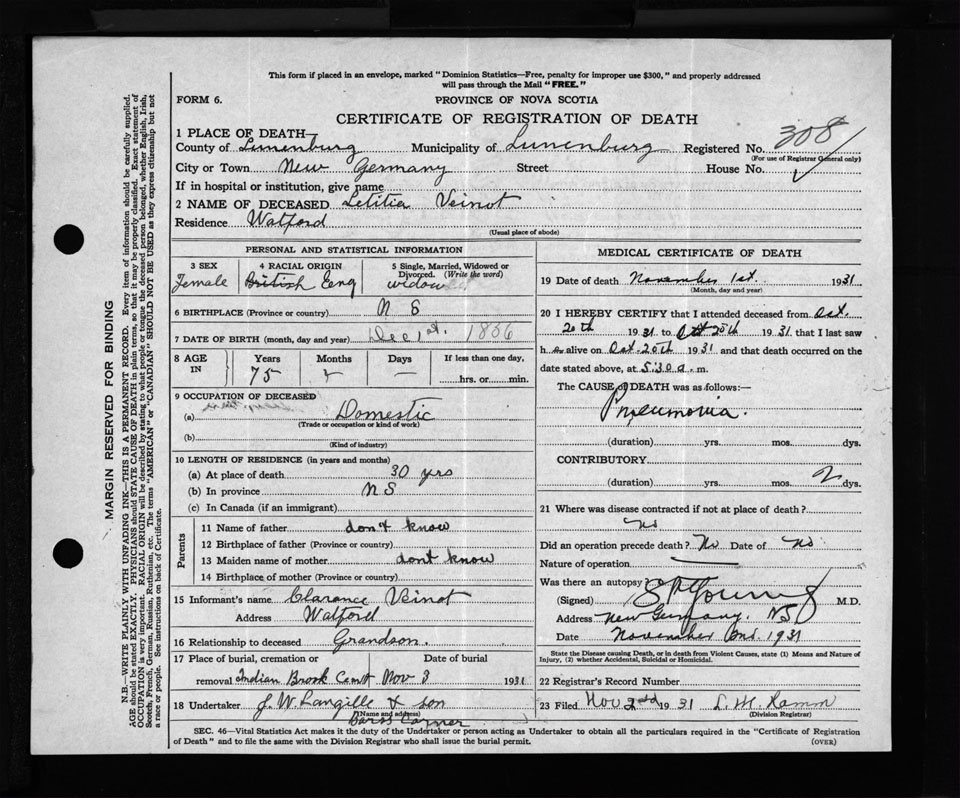 This form if placed in an envelope, marked "Dominion Statistics—Free, penalty for improper use $300," and properly addressed
will pass through the Mail "FREE."
FORM 6.
PROVINCE OF NOVA SCOTIA
CERTIFICATE OF REGISTRATION OF DEATH
1 PLACE OF DEATH—
County of Lunenburg Municipality of Lunenburg Registered No. 308
(For use of Registrar General only)
City or Town New Germany Street House No.
If in hospital or institution, give name
2 NAME OF DECEASED Letitia Veinot
Residence Watford
(Usual place of abode)
PERSONAL AND STATISTICAL INFORMATION
3 SEX
Female
4 RACIAL ORIGIN
British Eng
5 Single, Married, Widowed or
Divorced. (Write the word)
widow
6 BIRTHPLACE (Province or country) N S
7 DATE OF BIRTH (month, day and year) Dec 1st. 1856
8 AGE
IN
Years Months Days If less than one day,
75 — hrs. or min.
9 OCCUPATION OF DECEASED
(a) Domestic
(Trade or occupation or kind of work)
(b)
(Kind of industry)
10 LENGTH OF RESIDENCE (in years and months)
(a) At place of death 30 yrs
(b) In province N S
(c) In Canada (if an immigrant)
Parents
11 Name of father don't know
12 Birthplace of father (Province or country)
13 Maiden name of mother dont know
14 Birthplace of mother (Province or country)
15 Informant's name Clarance Veinot
Address Watford
16 Relationship to deceased Grandson.
17 Place of burial, cremation or Date of burial
removal Indian Brook Cemt Nov 3 1931
18 Undertaker J. W. Langille & son
(Name and address)
Barss Corner
MEDICAL CERTIFICATE OF DEATH
19 Date of death November 1st. 1931
(Month, day and year)
20 I HEREBY CERTIFY that I attended deceased from Oct.
20th 1931 to Oct 25th 1931 that I last saw
h alive on Oct. 20th 1931 and that death occurred on the
date stated above, at 5:30 a. m.
The CAUSE of DEATH was as follows:—
Pneumonia.
(duration) yrs. mos. dys.
CONTRIBUTORY
(duration) yrs. mos. 2 dys.
21 Where was disease contracted if not at place of death?
No
Did an operation precede death? No Date of No
Nature of operation —
Was there an autopsy?
(Signed) Young M.D.
Address New Germany. NS
Date November 2nd. 1931
State the Disease causing Death, or in death from Violent Causes, state (1) Means and Nature of
Injury, (2) whether Accidental, Suicidal or Homicidal.
22 Registrar's Record Number
23 Filed Nov 2nd 1931 L. M. Ramm
(Division Registrar)
SEC. 46—Vital Statistics Act makes it the duty of the Undertaker or person acting as Undertaker to obtain all the particulars required in the "Certificate of Registration
of Death" and to file the same with the Division Registrar who shall issue the burial permit.
(OVER)
MARGIN RESERVED FOR BINDING
N.B.—WRITE PLAINLY WITH UNFADING INK—THIS IS A PERMANENT RECORD. Every item of information should be carefully supplied.
AGE should be stated EXACTLY. PHYSICIANS should STATE CAUSE OF DEATH in plain terms, so that it may be properly classified. Exact statement of
OCCUPATION is very important. RACIAL ORIGIN will be described by stating to what people or tongue the deceased person belonged, whether English, Irish,
Scotch, French, German, Russian, Ruthenian, etc. The terms "AMERICAN" or "CANADIAN" SHOULD NOT BE USED as they express citizenship but not
a race or people. See instructions on back of Certificate.